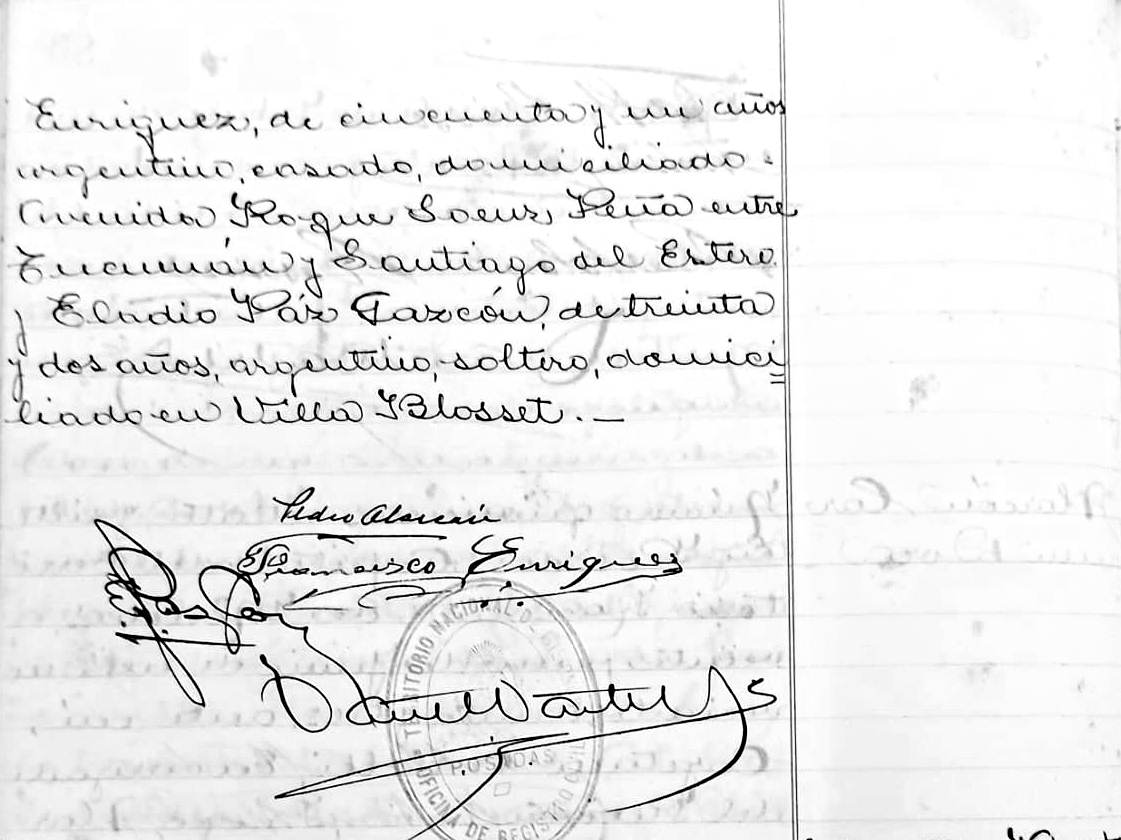 Enriquez, de cincuenta y un años
argentino, casado, domiciliado
Avenida Roque Saenz Peña entre
Tucumán y Santiago del Estero
y Eladio Páz Gazcón, de treinta
y dos años, argentino, soltero, domici
liado en Villa Blosset. —
Pedro Alarcón
Francisco Enriquez
TERRITORIO NACIONAL D
POSADAS
OFICINA DE REGISTRO CIVIL